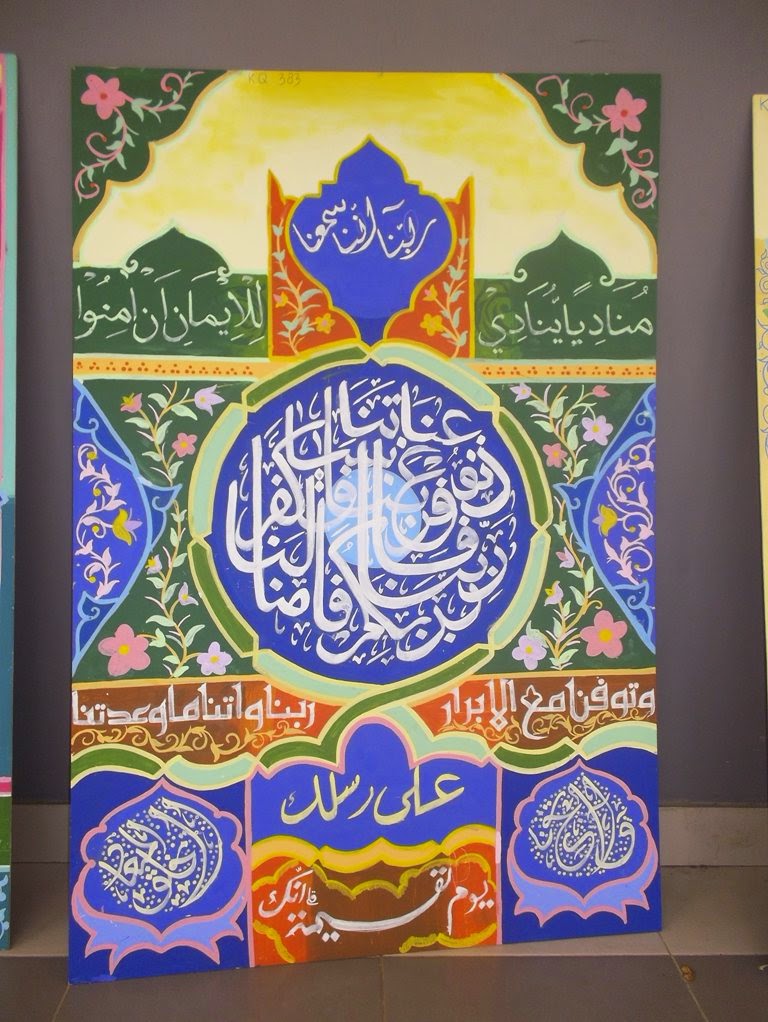 KQ 383
ربنا اننا سمعنا
مُنَادِيًا يُّنَادِيْ لِلْاِيْمَانِ اَنْ اٰمِنُوْا
بربكم فامنا ربنا فاغفر لنا ذنوبنا وكفر عنا
وتوفنا مع الابرار ربنا واتنا ما وعدتنا
على رسلك
ولا تخزنا
يوم القيمة انّك